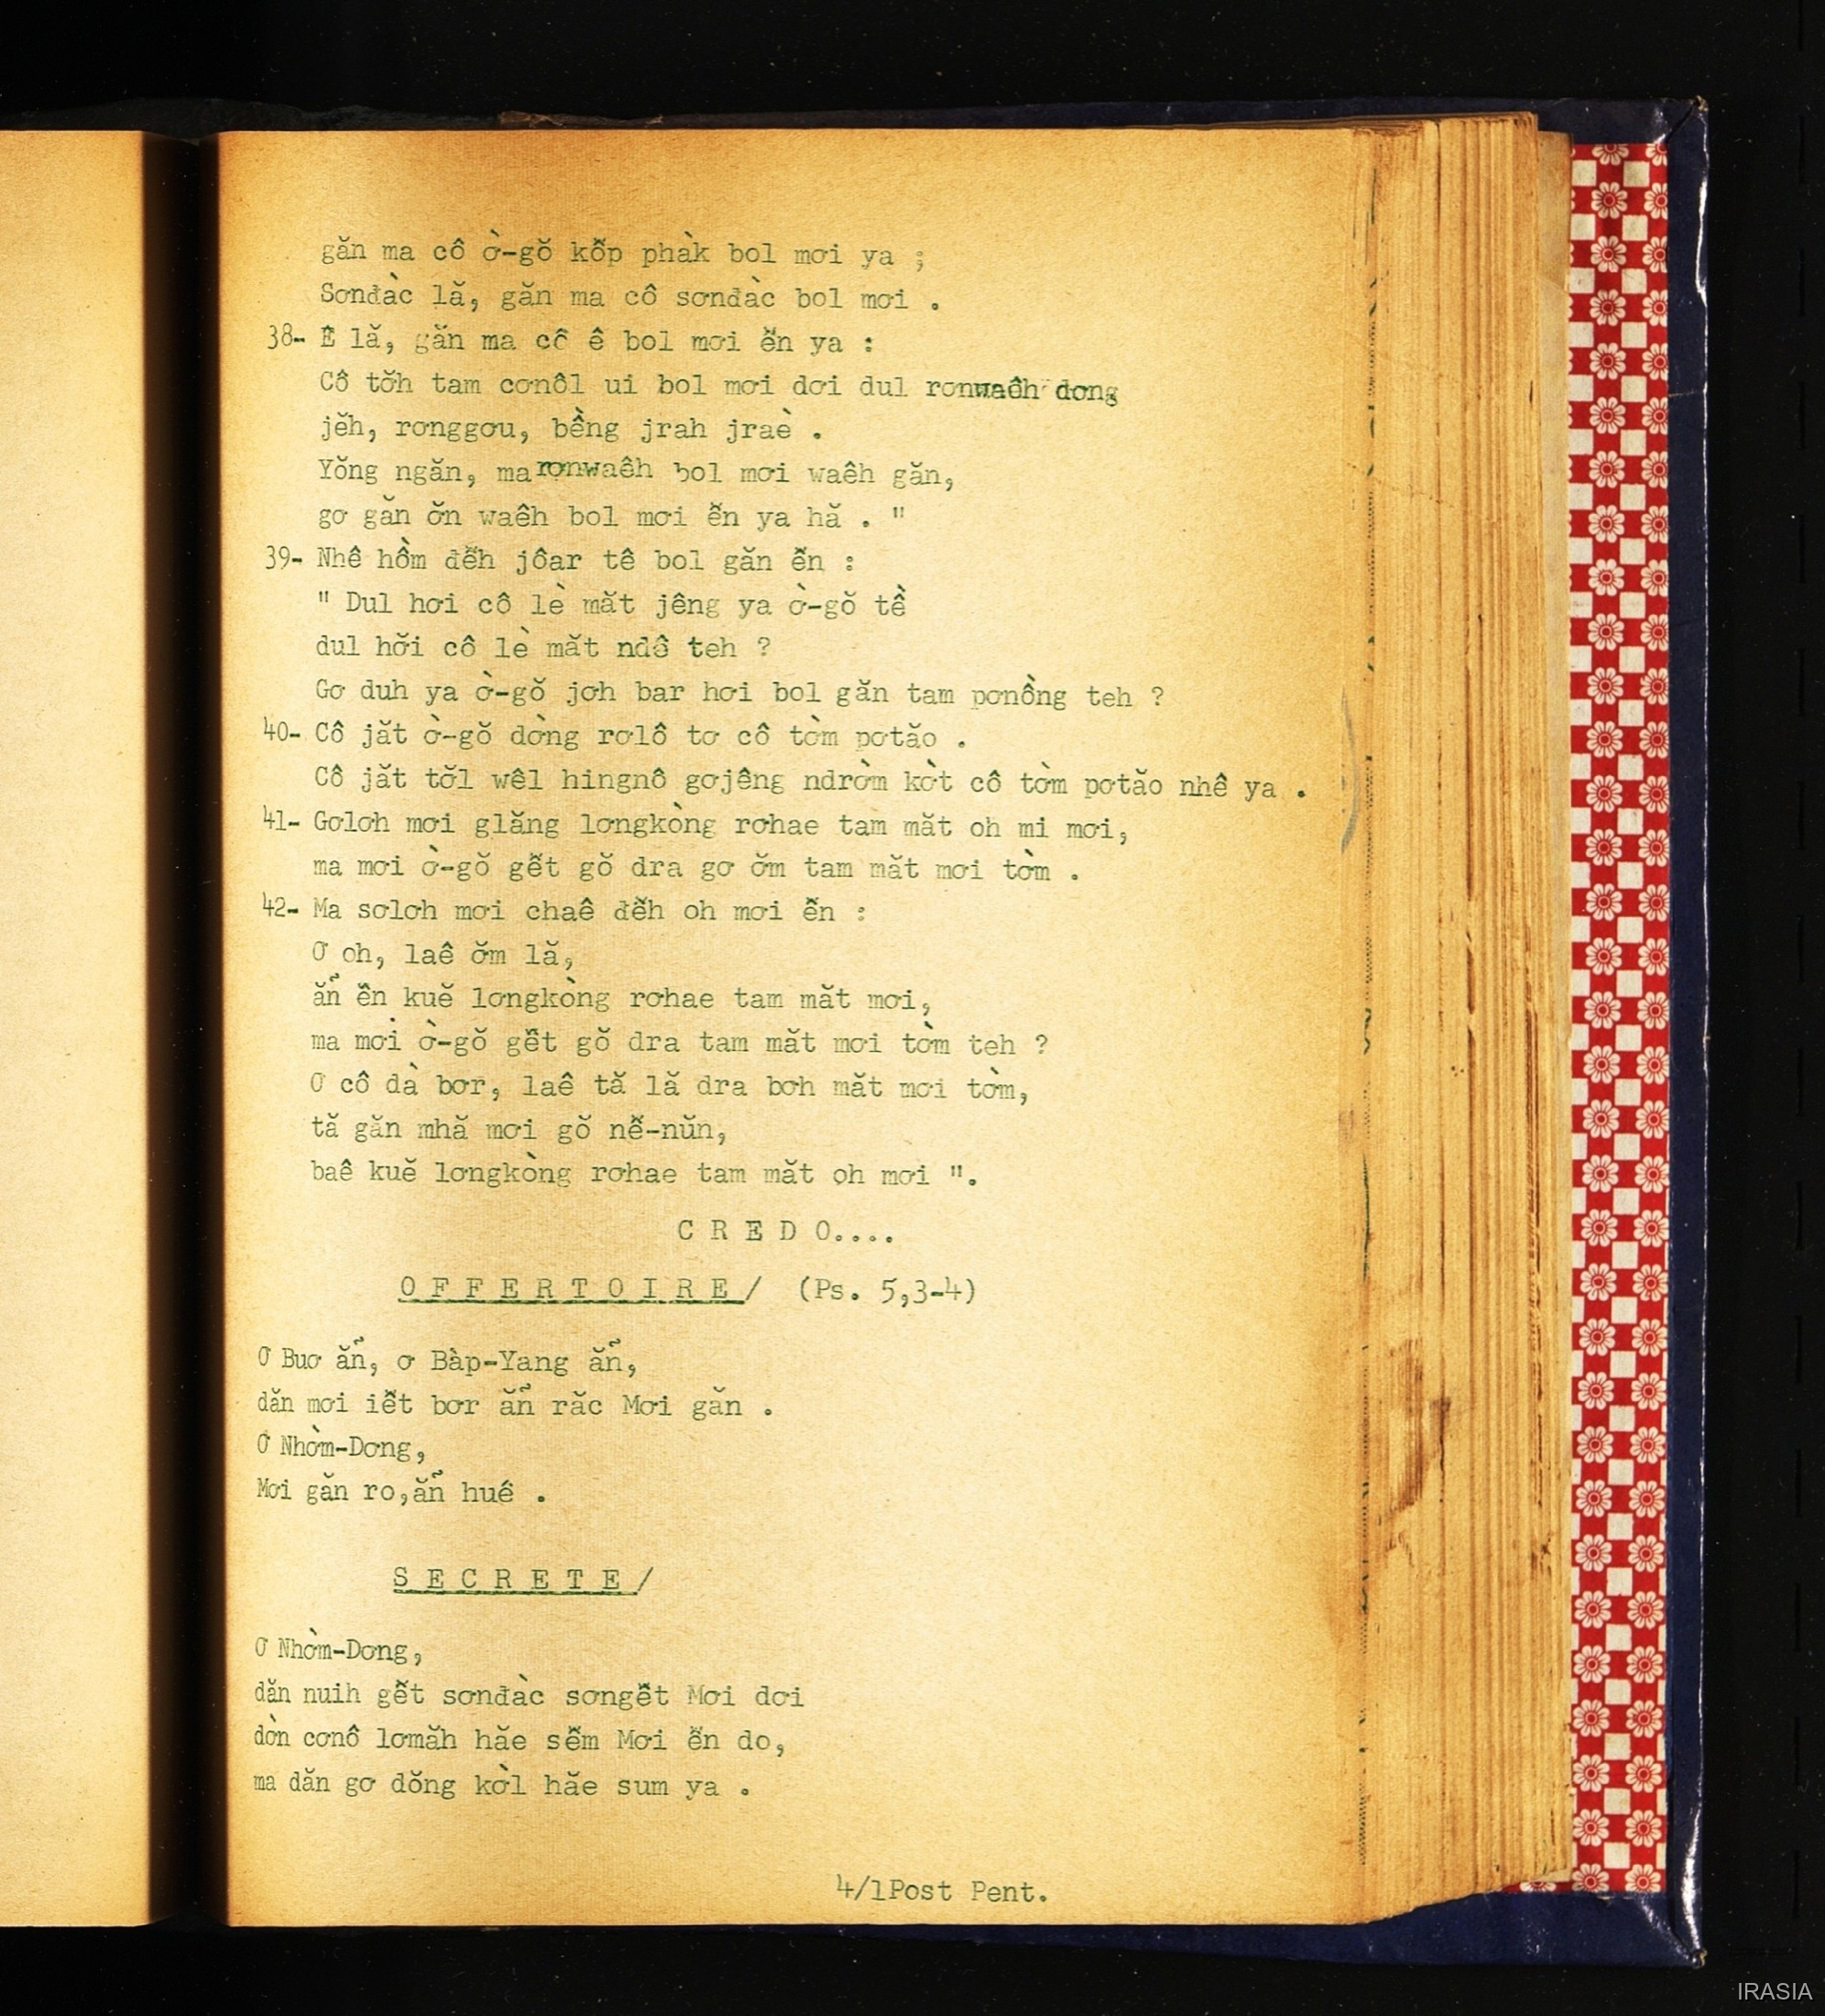 găn ma cô ờ-gŏ kơ̆p phàk bol mơi ya ;
Sơnđàc lă, găn ma cô sơnđàc bol mơi .
38- Ê lă, găn ma cô ê bol mơi ễn ya :
Cô tơ̆h tam cơnôl ui bol mơi dơi dul rơnwaêh dơng
jĕh, rơnggơu, bềng jrah jraè .
Yŏng ngăn, ma rơnwaêh bol mơi waêh găn,
gơ găn ơ̆n waêh bol mơi ễn ya hă . "
39- Nhê hồm đễh jôar tê bol găn ễn :
" Dul hơi cô lè măt jêng ya ờ-gŏ tề
dul hơ̆i cô lè măt ndô teh ?
Gơ duh ya ờ-gŏ jơh bar hơi bol găn tam pơnồng teh ?
40- Cô jăt ờ-gŏ dờng rơlô tơ cô tờm pơtăo .
Cô jăt tơ̆l wêl hingnô gơjêng ndrờm kờt cô tờm pơtăo nhê ya .
41- Gơlơh mơi glăng lơngkòng rơhae tam măt oh mi mơi,
ma mơi ờ-gŏ gết gŏ dra gơ ơ̆m tam măt mơi tờm .
42- Ma sơlơh mơi chaê đễh oh mơi ễn :
Ơ oh, laê ơ̆m lă,
ẵn ễn kuĕ lơngkòng rơhae tam măt mơi,
ma mơi ờ-gŏ gễt gŏ dra tam măt mơi tờm teh ?
Ơ cô dà bơr, laê tă lă dra bơh măt mơi tờm,
tă găn mhă mơi gŏ nễ-nŭn,
baê kuĕ lơngkòng rơhae tam măt oh mơi ".
C R E D O....
O F F E R T O I R E / (Ps. 5,3-4)
Ơ Buơ ẵn, ơ Bàp-Yang ẵn,
dăn mơi iễt bơr ẵn răc Mơi găn .
Ơ Nhờm-Dơng,
Mơi găn ro,ẵn huê .
S E C R E T E /
Ơ Nhờm-Dơng,
dăn nuih gễt sơnđàc sơngễt Mơi dơi
dờn cơnô lơmăh hăe sễm Mơi ễn do,
ma dăn gơ dŏng kờl hăe sum ya .
4/1Post Pent.
IRASIA